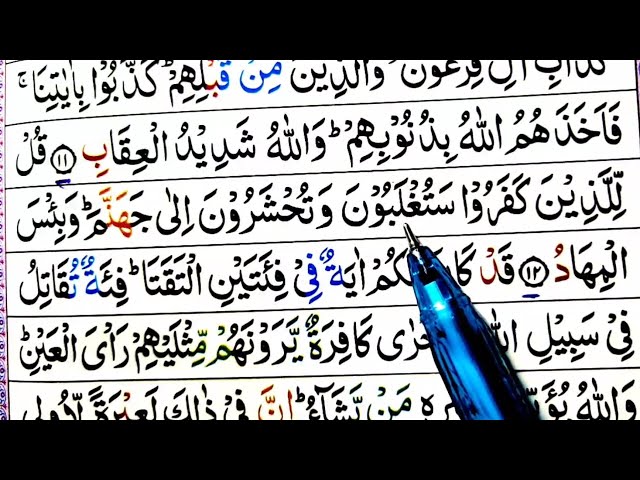 كَدَاْبِ اٰلِ فِرْعَوْنَ ۙ وَالَّذِيْنَ مِنْ قَبْلِهِمْ ؕ كَذَّبُوْا بِاٰيٰتِنَا ۚ
فَاَخَذَهُمُ اللّٰهُ بِذُنُوْبِهِمْ ؕ وَاللّٰهُ شَدِيْدُ الْعِقَابِ ﴿۱۱﴾ قُلْ
لِّلَّذِيْنَ كَفَرُوْا سَتُغْلَبُوْنَ وَتُحْشَرُوْنَ اِلٰى جَهَنَّمَ ؕ وَبِئْسَ
الْمِهَادُ ﴿۱۲﴾ قَدْ اٰيَةٌ فِيْ فِئَتَيْنِ الْتَقَتَا ؕ فِئَةٌ تُقَاتِلُ
فِيْ سَبِيْلِ كَافِرَةٌ يَّرَوْنَهُمْ مِّثْلَيْهِمْ رَاْيَ الْعَيْنِ ؕ
وَاللّٰهُ مَنْ يَّشَآءُ ؕ اِنَّ فِيْ ذٰلِكَ لَعِبْرَةً لِّاُولِي